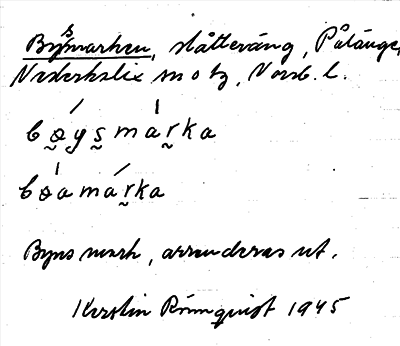 Bysmarken, slåtteräng, Pålänge,
Nederkalix sn o tg, Norrb. l.
bøysmarka
bøamarka
Byns mark, arrenderas ut.
Kerstin Rönnquist 1945